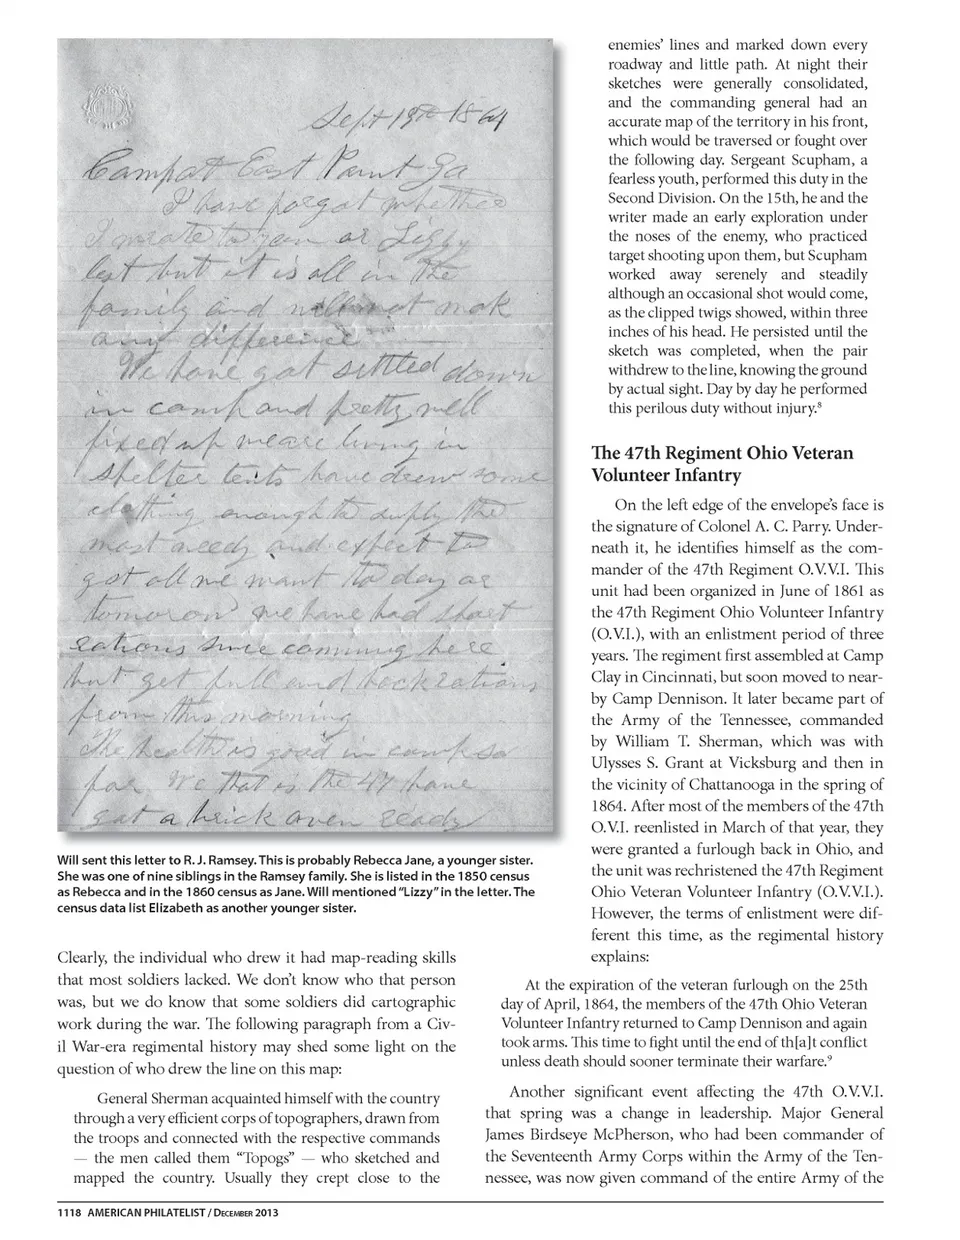 Sept 19th 1864
Camp at East Point Ga
I have forgot whether
I wrote to you or Lizzy
last but it is all in the
family and will not mak
any difference
We have got settled down
in camp and pretty well
fixed up we are living in
shelter tents have drew some
clothing enough to suply the
most needy and expect to
got all we want to day or
tomorow we have had short
rations since comming here
but get full and back rations
from this morning
The health is good in camp so
far We that is the 47 have
got a brick oven ready
Will sent this letter to R. J. Ramsey. This is probably Rebecca Jane, a younger sister.
She was one of nine siblings in the Ramsey family. She is listed in the 1850 census
as Rebecca and in the 1860 census as Jane. Will mentioned “Lizzy” in the letter. The
census data list Elizabeth as another younger sister.
Clearly, the individual who drew it had map-reading skills
that most soldiers lacked. We don’t know who that person
was, but we do know that some soldiers did cartographic
work during the war. The following paragraph from a Civ-
il War-era regimental history may shed some light on the
question of who drew the line on this map:
General Sherman acquainted himself with the country
through a very efficient corps of topographers, drawn from
the troops and connected with the respective commands
— the men called them “Topogs” — who sketched and
mapped the country. Usually they crept close to the
enemies’ lines and marked down every
roadway and little path. At night their
sketches were generally consolidated,
and the commanding general had an
accurate map of the territory in his front,
which would be traversed or fought over
the following day. Sergeant Scupham, a
fearless youth, performed this duty in the
Second Division. On the 15th, he and the
writer made an early exploration under
the noses of the enemy, who practiced
target shooting upon them, but Scupham
worked away serenely and steadily
although an occasional shot would come,
as the clipped twigs showed, within three
inches of his head. He persisted until the
sketch was completed, when the pair
withdrew to the line, knowing the ground
by actual sight. Day by day he performed
this perilous duty without injury.⁸
The 47th Regiment Ohio Veteran
Volunteer Infantry
On the left edge of the envelope’s face is
the signature of Colonel A. C. Parry. Under-
neath it, he identifies himself as the com-
mander of the 47th Regiment O.V.V.I. This
unit had been organized in June of 1861 as
the 47th Regiment Ohio Volunteer Infantry
(O.V.I.), with an enlistment period of three
years. The regiment first assembled at Camp
Clay in Cincinnati, but soon moved to near-
by Camp Dennison. It later became part of
the Army of the Tennessee, commanded
by William T. Sherman, which was with
Ulysses S. Grant at Vicksburg and then in
the vicinity of Chattanooga in the spring of
1864. After most of the members of the 47th
O.V.I. reenlisted in March of that year, they
were granted a furlough back in Ohio, and
the unit was rechristened the 47th Regiment
Ohio Veteran Volunteer Infantry (O.V.V.I.).
However, the terms of enlistment were dif-
ferent this time, as the regimental history
explains:
At the expiration of the veteran furlough on the 25th
day of April, 1864, the members of the 47th Ohio Veteran
Volunteer Infantry returned to Camp Dennison and again
took arms. This time to fight until the end of th[a]t conflict
unless death should sooner terminate their warfare.⁹
Another significant event affecting the 47th O.V.V.I.
that spring was a change in leadership. Major General
James Birdseye McPherson, who had been commander of
the Seventeenth Army Corps within the Army of the Ten-
nessee, was now given command of the entire Army of the
1118 AMERICAN PHILATELIST / DECEMBER 2013